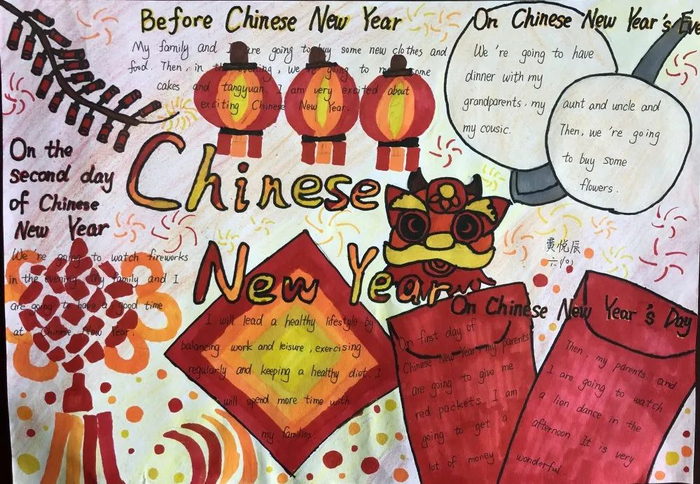 Before Chinese New Year
My family and I are going to buy some new clothes and
food. Then, in the evening, we going to some
cakes and tangyuan. I am very excited about
exciting Chinese New Year.
On Chinese New Year's Eve
We 're going to have
dinner with my
grandparents. my
my cousic.
aunt and uncle and
Then, we 're going
to buy some
flowers.
Chinese
New Year
On the
second day
of Chinese
New Year
We're going to watch fireworks
in the evening. My family and I
are going to have a good time
at Chinese New Year.
I will lead a healthy lifestyle by
balancing work and leisure, exercising
regularly and keeping a healthy diet. I
will spend more time with
my families.
黄悦辰
On Chinese New Year's Day
On first day of
Chinese New Year my parents
are going to give me
red packets. I am
going to get a
lot of money.
Then, my parents and
I are going to watch
a lion dance in the
afternoon. It is very
wonderful.